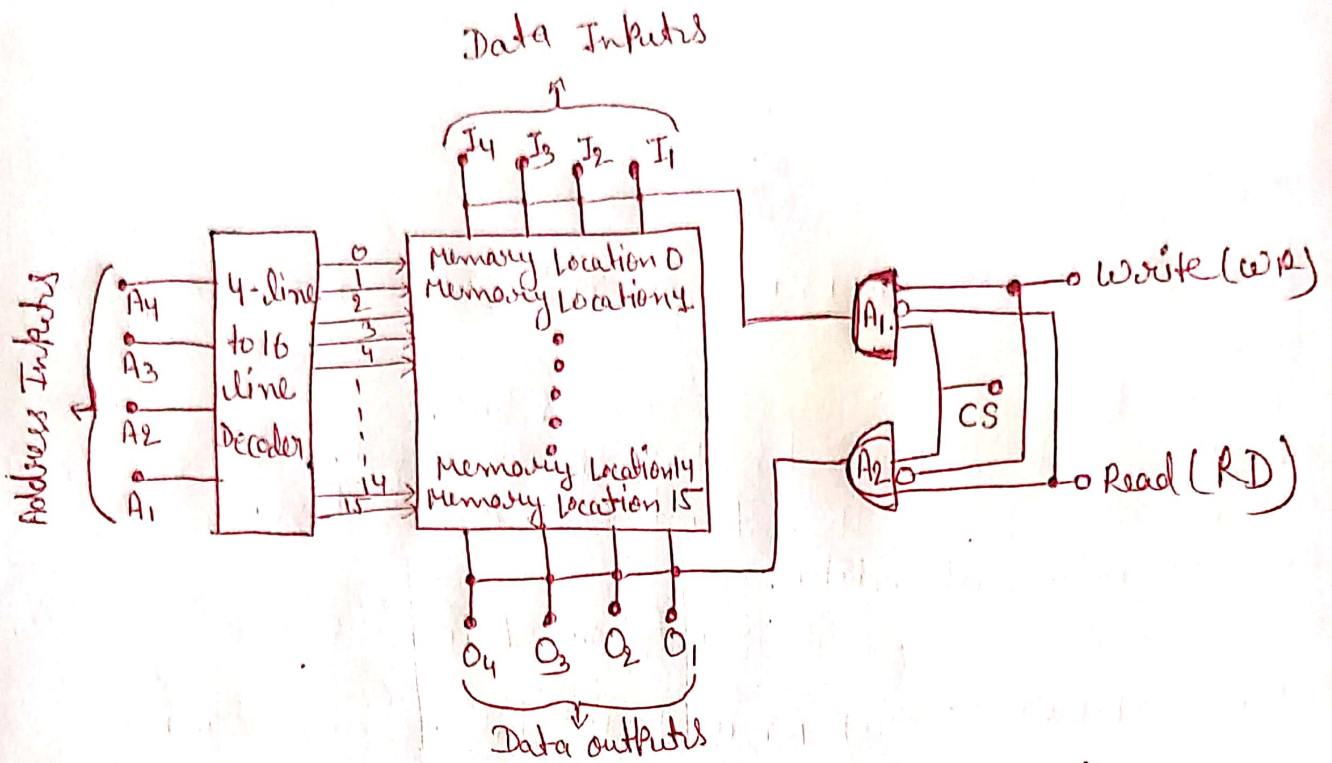 Data Inputs
I4 I3 I2 I1
Address Inputs
A4
A3
A2
A1
4-line
to 16
line
Decoder
0
1
2
3
4
14
15
Memory Location 0
Memory Location 1
Memory Location 14
Memory Location 15
A1.
A2
Write (WR)
CS
Read (RD)
O4 O3 O2 O1
Data outputs